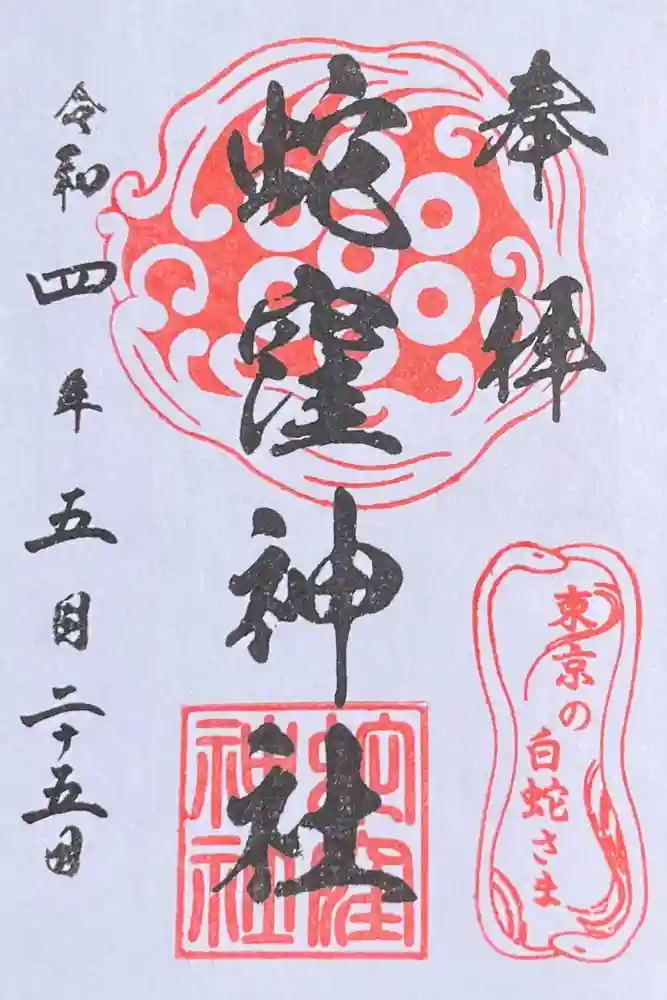 奉拝
蛇窪神社
蛇窪
神社
東京の
白蛇さま
令和四年五月二十五日